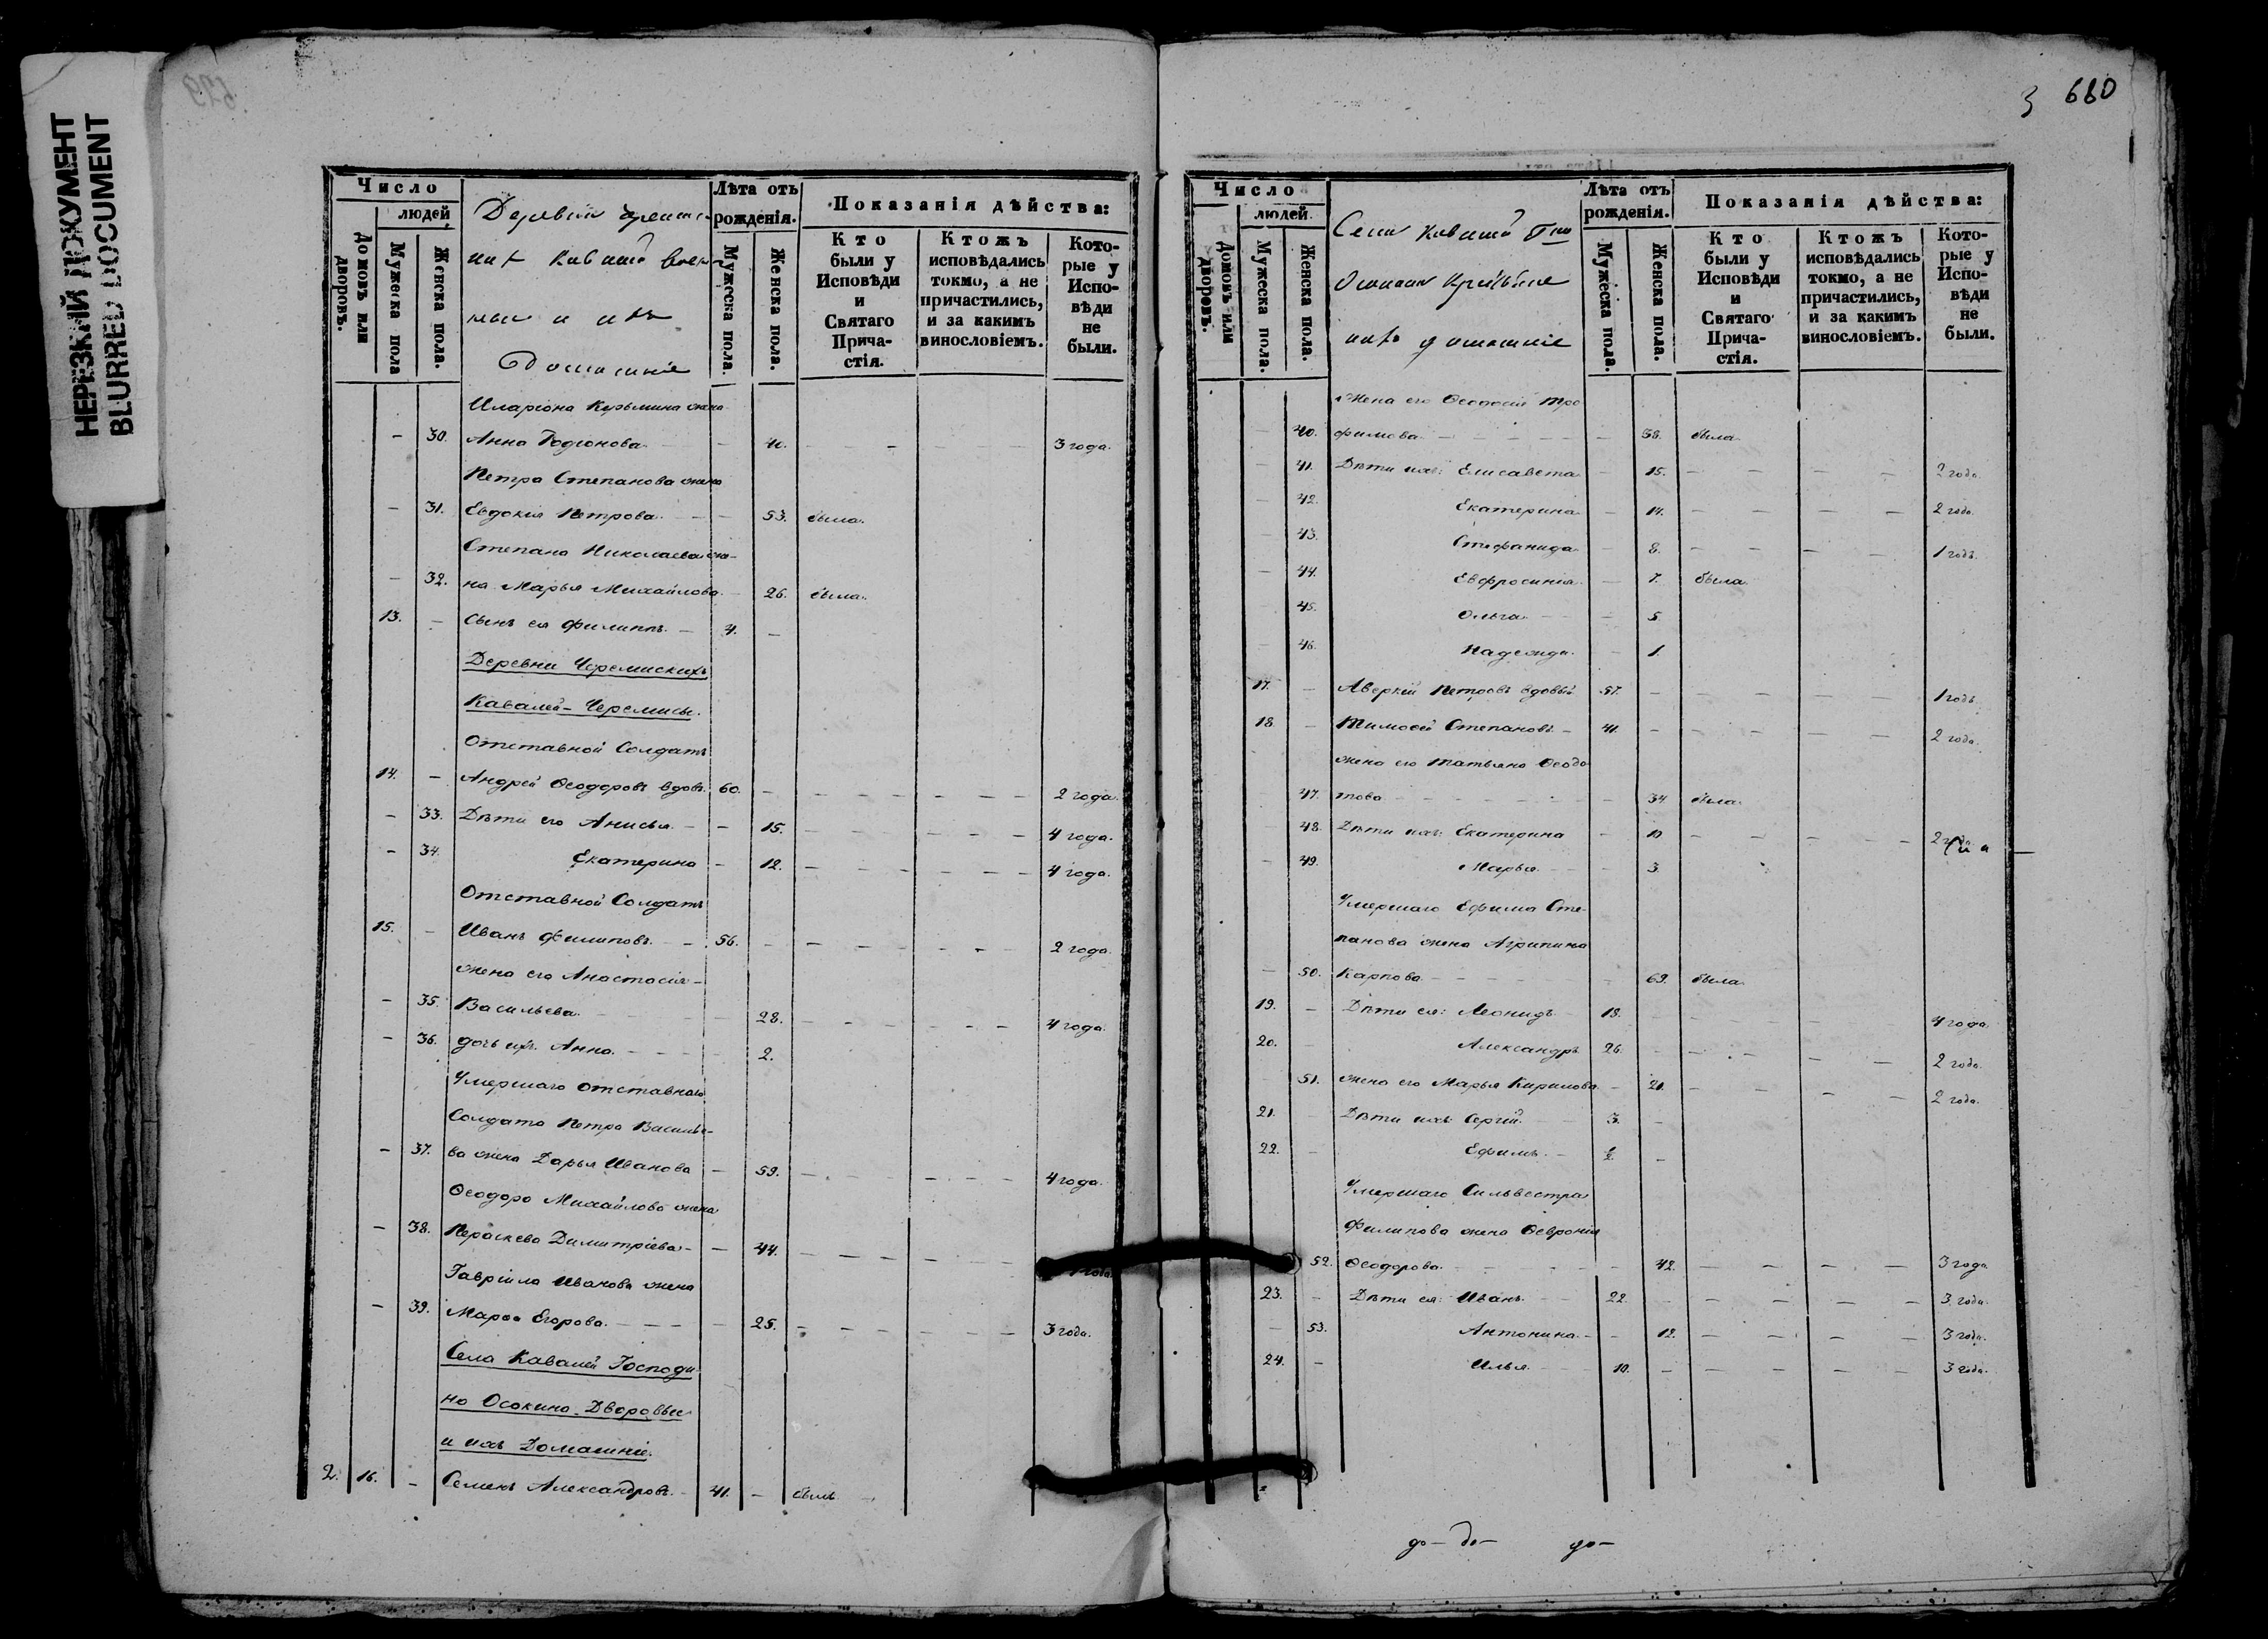 НЕРЕЗКИЙ ДОКУМЕНТ
BLURRED DOCUMENT
Число
людей
Домовъ или дворовъ.
Мужеска пола
Женска пола.
Деревни
Кавалей
и ихъ
Домашніе
Лѣта отъ рожденія.
Мужеска пола.
Женска пола.
Показанія дѣйства:
Кто были у Исповѣди и Святаго Прича-стія.
Ктожъ исповѣдались токмо, а не причастились, и за какимъ винословіемъ.
Кото-рые у Испо-вѣди не были.
Иларіона Кузьмина жена
– 30. Анна Родіонова – – 3 года.
Петра Степанова жена
– 31. Евдокія Петрова – 53. была.
Степана Николаева же-
– 32. на Марья Михайлова – 26. была.
13. – Сынъ ея Филиппъ – 4. –
Деревни Черемискихъ
Кавалей – Черемисы.
Отставной Солдатъ
14. – Андрей Ѳеодоровъ вдовъ 60. – – – 2 года.
– 33. Дѣти его Анисья – – 15. – – 4 года.
– 34. Екатерина – 12. – – 4 года.
Отставной Солдатъ
15. – Иванъ Филиповъ – 56. – – – 2 года.
жена его Анастасія –
– 35. Васильева – 28. – – 4 года.
– 36. дочь ихъ Анна – 2.
Умершаго отставнаго
Солдата Петра Василье-
– 37. ва жена Дарья Иванова – 59. – – 4 года.
Ѳеодора Михайлова жена
– 38. Параскева Димитріева – – 44. – –
Гавріила Иванова жена
– 39. Марѳа Егорова – – 25. – – 3 года.
Села Кавалей Господи-
на Осокина Дворовые
и ихъ Домашніе.
2. 16. – Семенъ Александровъ – 41. – былъ
3 680
Число
людей.
Домовъ или дворовъ.
Мужеска пола.
Женска пола.
Села Кавалей Гна
Осокина
ихъ домашніе
Лѣта отъ рожденія.
Мужеска пола.
Женска пола.
Показанія дѣйства:
Кто были у Исповѣди и Святаго Прича-стія.
Ктожъ исповѣдались токмо, а не причастились, и за какимъ винословіемъ.
Кото-рые у Испо-вѣди не были.
жена его Ѳеодосія Тро
– 40. фимова – – 38. была
– 41. Дѣти ихъ: Елисавета – 15. – – – 2 года.
– 42. Екатерина – 14. – – – 2 года.
– 43. Стефанида – 8. – – – 1 годъ.
– 44. Евфросинія – 7. была
– 45. Ольга – 5
– 46. Надежда – 1.
17. – Аверкій Петровъ вдовый 57. – – – 1 годъ
18. – Тимоѳей Степановъ – 41. – – – 2 года.
жена его Татьяна Ѳеодо
47. това – – 34 была
– 48. Дѣти ихъ: Екатерина – – – – 2 года
– 49. Марья – 3.
Умершаго Ефима Сте-
панова жена Агрипина
– 50. Карпова – – 69. была
19. – Дѣти ея: Леонидъ 19. – – 4 года.
20. – Александръ 26. – – – 2 года.
51. жена его Марья Кирилова – 21. – – – 2 года.
21. Дѣти ихъ Сергій – 3. –
22. – Ефимъ – ½ –
Умершаго Сильвестра
Филипова жена Ѳевронія
52. Ѳеодорова – – 42. – – – 3 года
23. – Дѣти ея: Иванъ 22. – – – 3 года.
– 53. Антонина – 12. – – – 3 года.
24. – Илья – 10. – – – 3 года.
до – до – до –